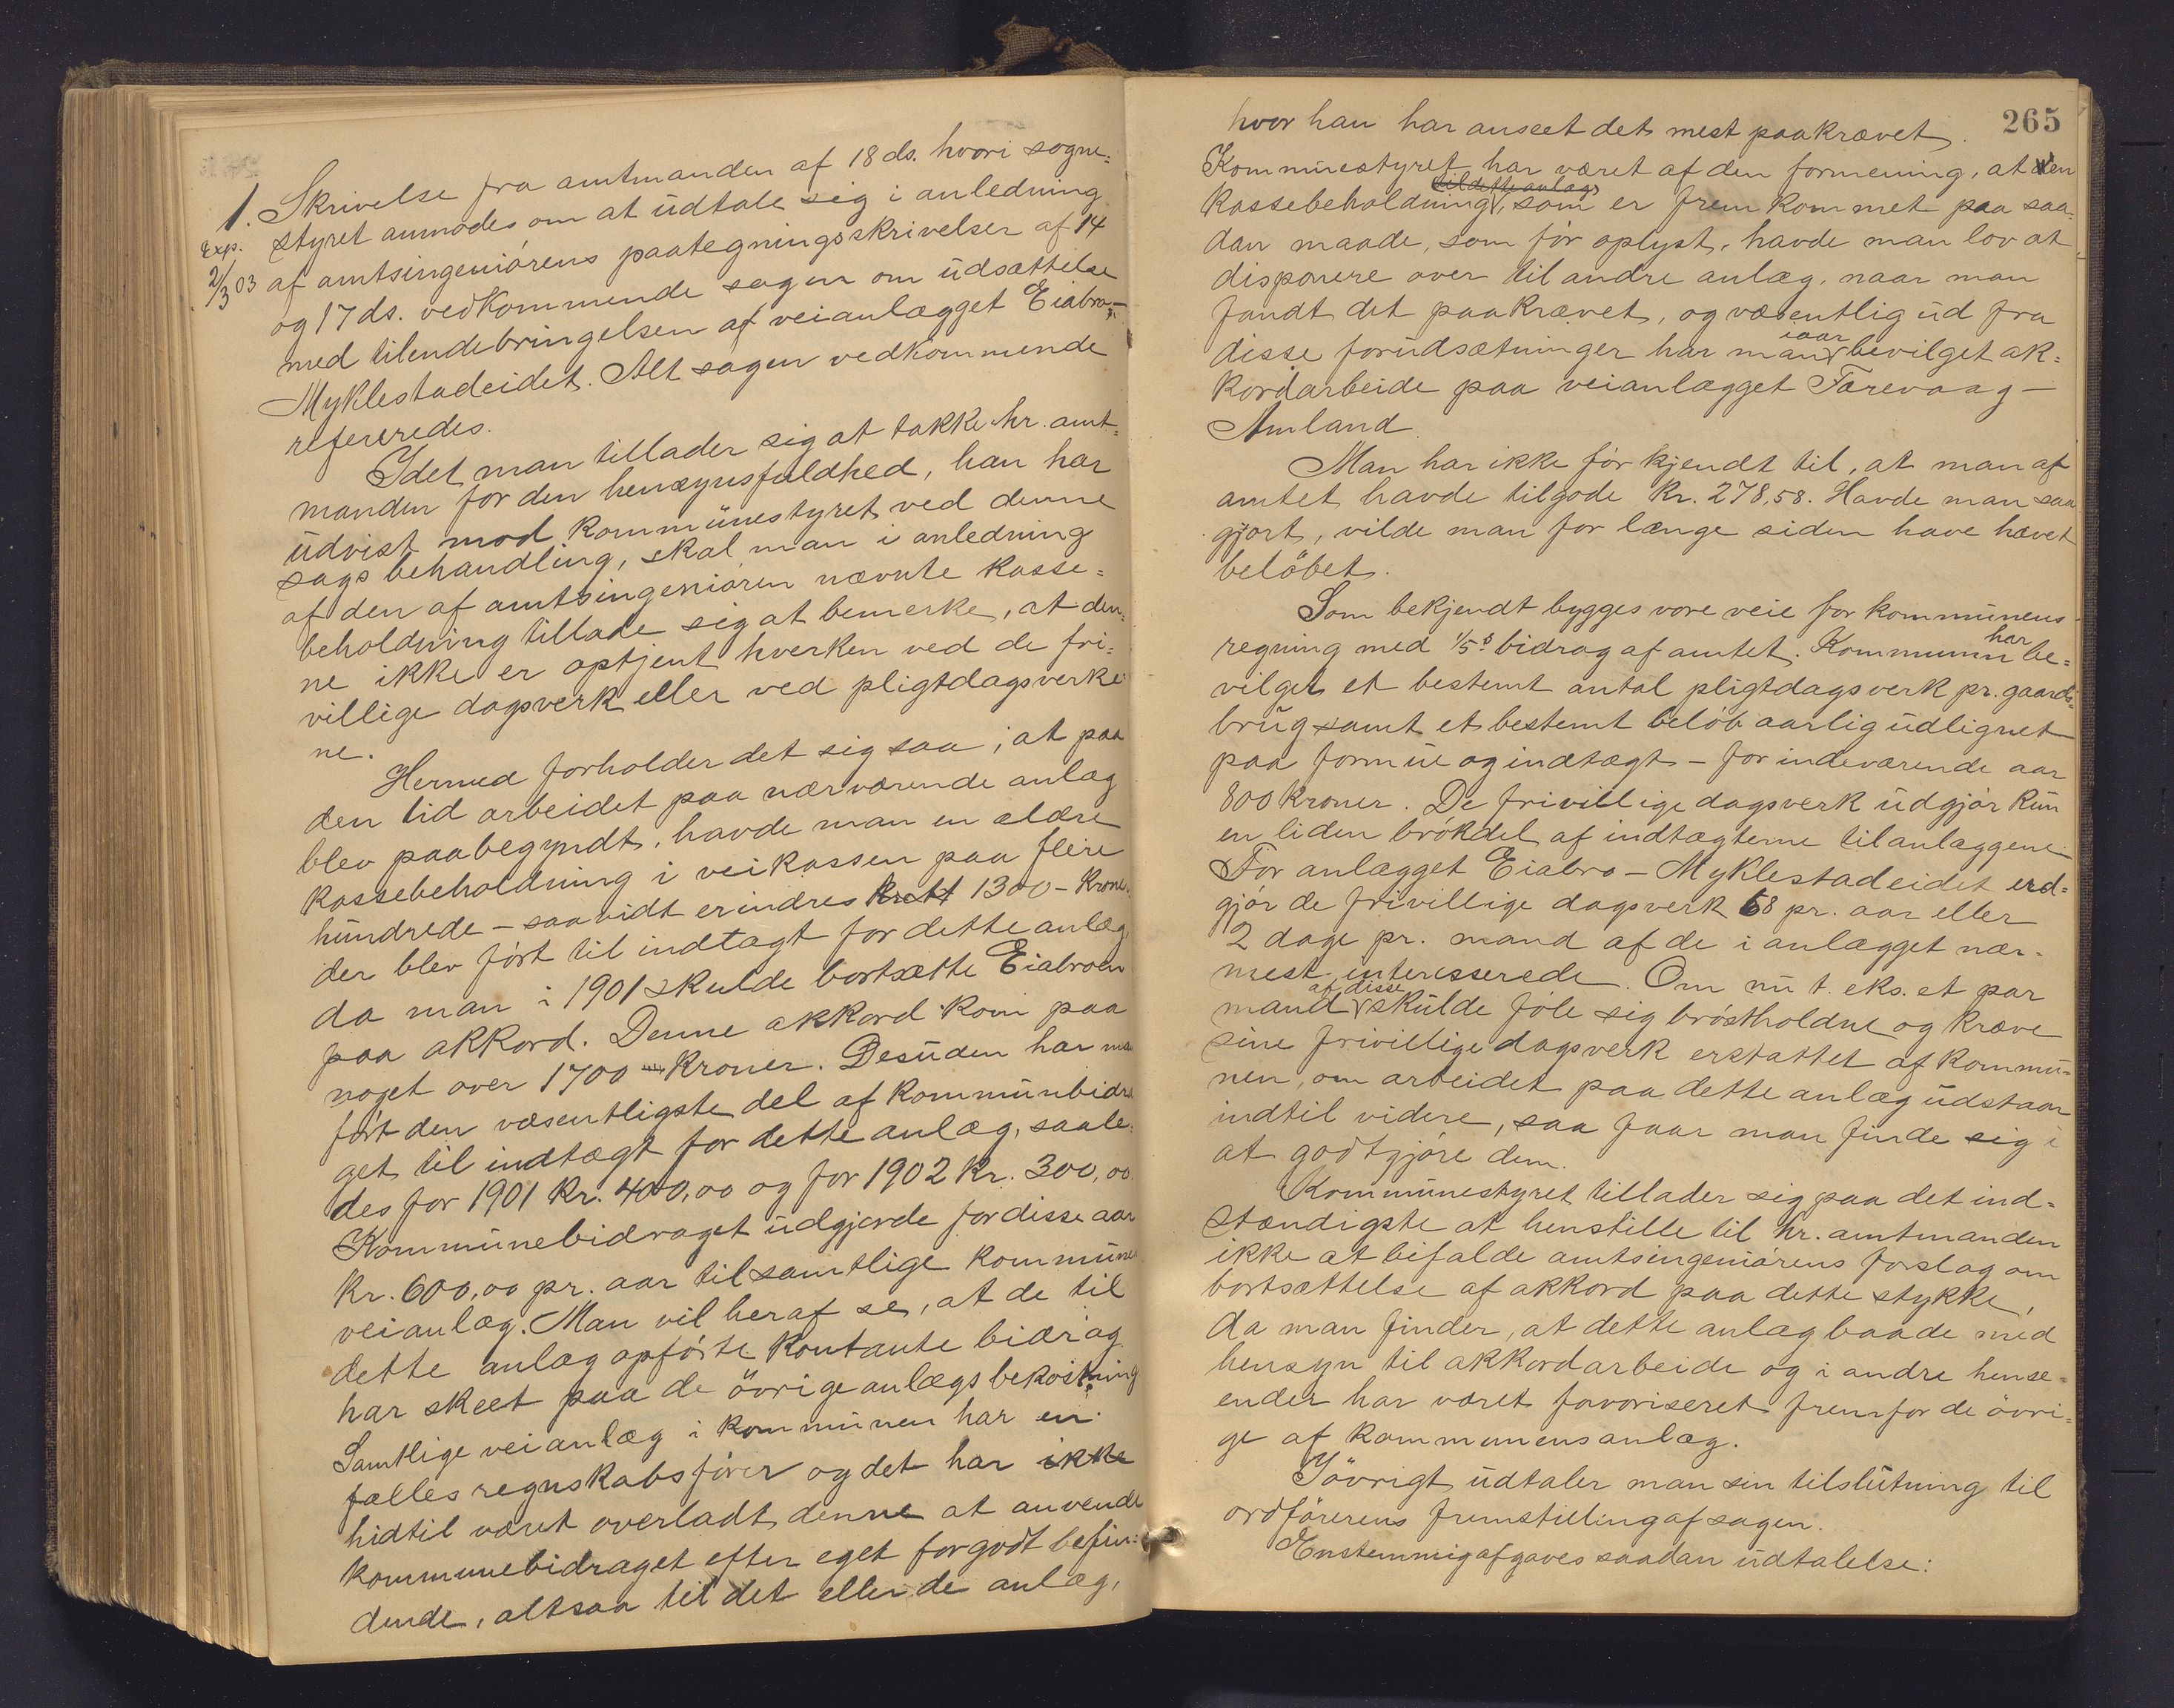 1. Skrivelse fra amtmanden af 18 ds. hvori sogne=
Exp. styret anmodes om at udtale sig i anledning
2/3 03 af amtsingeniörens paategningsskrivelser af 14
og 17 ds. vedkommende sagen om udsættelse
med tilendebringelsen af veianlægget Eiabro-
Myklestadeidet. Alt sagen vedkommende
refereredes.
Idet man tillader sig at takke hr. amt=
manden for den hensynsfuldhed, han har
udvist mod kommunestyret ved denne
sags behandling, skal man i anledning
af den af amtsingeniören nævnte kasse=
beholdning tillade sig at bemerke, at den=
ne ikke er optjent hverken ved de fri=
villige dagsverk eller ved pligtdagsverke
ne.
Hermed forholder det sig saa, at paa
den tid arbeidet paa nærværende anlæg
blev paabegyndt, havde man en ældre
kassebeholdning i veikassen paa flere
hundrede - saavidt erindres 1300 - Kroner
der blev ført til indtægt for dette anlæg
da man i 1901 skulde bortsætte Eiabroen
paa akkord. Denne akkord kom paa
noget over 1700 Kroner. Desuden har man
ført den væsentligste del af kommunbidra
get til indtægt for dette anlæg, saale=
des for 1901 Kr. 400,00 og for 1902 Kr. 300,00.
Kommunebidraget udgjorde for disse aar
Kr. 600,00 pr. aar til samtlige kommune
veianlæg. Man vil heraf se, at de til
dette anlæg opførte kontante bidrag
har skeet paa de övrige anlægs bekostning
Samtlige veianlæg i kommunen har en
fælles regnskabsfører og det har ikke
hidtil været overladt denne at anvende
kommunebidraget efter eget forgodtbefin=
dende, altsaa til det eller de anlæg,
265
hvor han har anseet det mest paakrævet.
Kommunestyret har været af den formening, at den
til dette anlæg
kassebeholdning, som er fremkommet paa saa=
dan maade, som før oplyst, havde man lov at
disponere over til andre anlæg, naar man
fandt det paakrævet, og væsentlig ud fra
iaar
disse forudsætninger har man bevilget ak=
kordarbeide paa veianlægget Færevaag -
Amland.
Man har ikke før kjendt til, at man af
amtet havde tilgode Kr. 278,58. Havde man saa
gjort, vilde man for længe siden have hævet
belöbet.
Som bekjendt bygges vore veie for kommunens
har
regning med 1/5s bidrag af amtet. Kommunen be=
vilget et bestemt antal pligtdagsverk pr. gaards=
brug samt et bestemt belöb aarlig udlignet
paa formue og indtægt - for indeværende aar
800 kroner. De frivillige dagsverk udgjør kun
en liden brøkdel af indtægterne til anlæggene.
For anlægget Eiabro - Myklestadeidet ud=
gjør de frivillige dagsverk 68 pr. aar eller
2 dage pr. mand af de i anlægget nær=
mest interesserede. Om nu t. eks. et par
af disse
mand skulde føle sig brøstholdne og kræve
sine frivillige dagsverk erstattet af kommu=
nen, om arbeidet paa dette anlæg udstaar
indtil videre, saa faar man finde sig i
at godtgjøre dem.
Kommunestyret tillader sig paa det ind=
stændigste at henstille til hr. amtmanden
ikke at bifalde amtsingeniørens forslag om
bortsættelse af akkord paa dette stykke,
da man finder, at dette anlæg baade med
hensyn til akkordarbeide og i andre hense=
ender har været favoriseret fremfor de övri=
ge af kommunens anlæg.
Iövrigt udtaler man sin tilslutning til
ordförerens fremstilling af sagen.
Enstemmig afgaves saadan udtalelse: